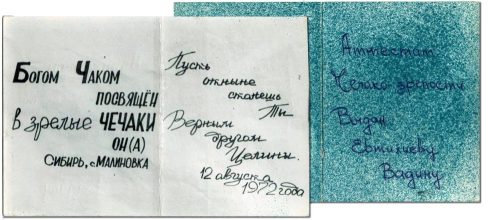 Богом Чаком
посвящён
в зрелые ЧЕЧАКИ
он(а)
Сибирь, с. Малиновка
Пусть
отныне
станешь
Ты
Верным
другом
Целины.
12 августа
1972 года
Аттестат
Чечако зрелости
Выдан
Евтихиеву
Вадиму